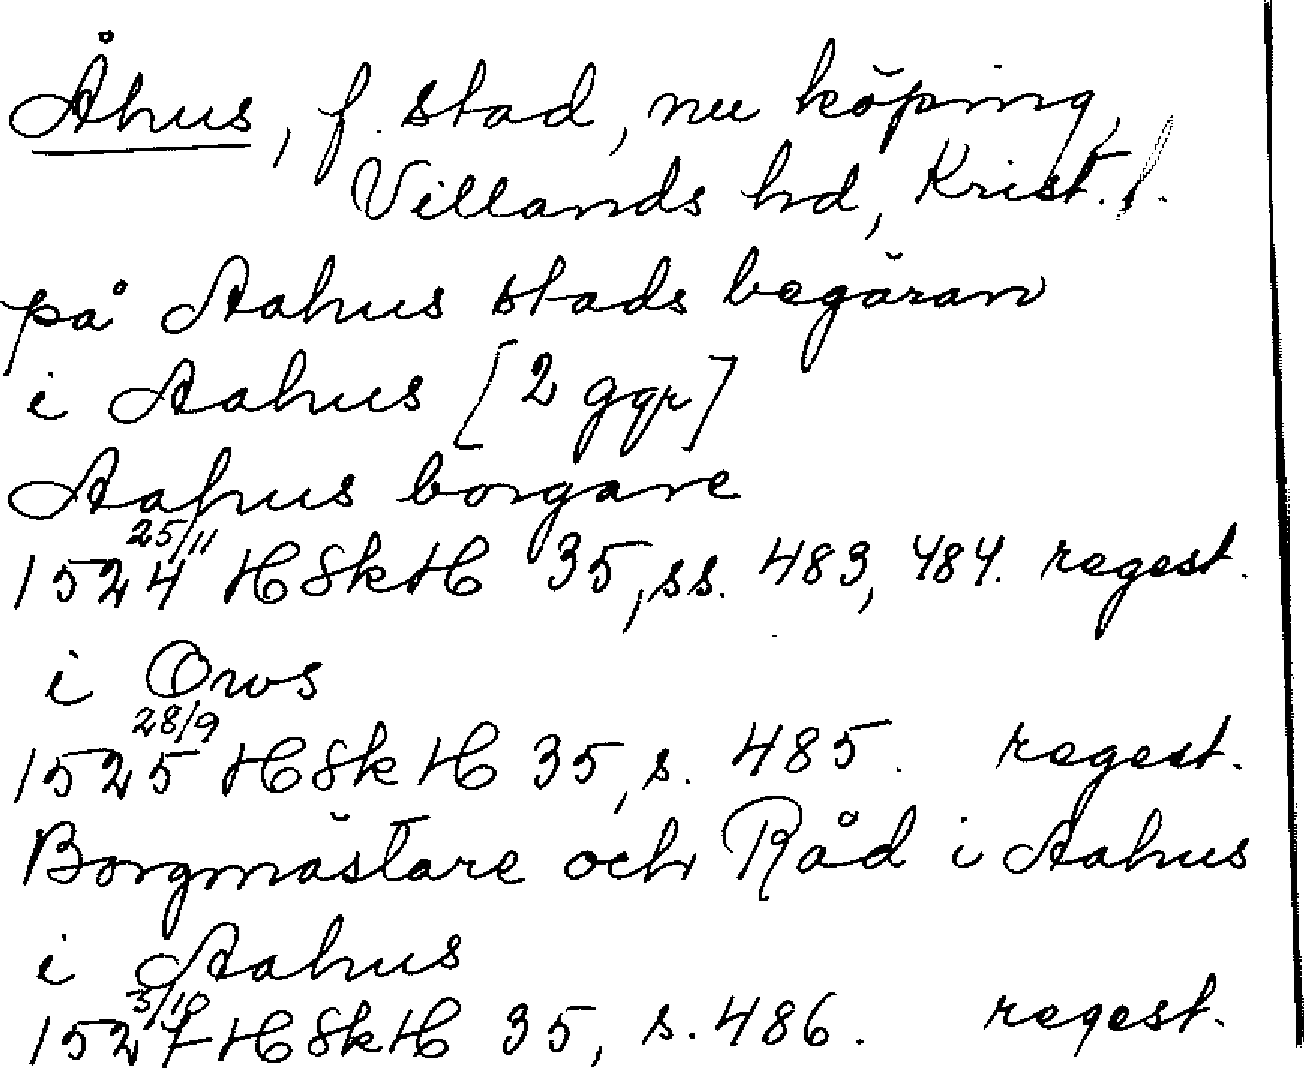 Åhus, f. stad, nu köping,
Villands hd, Krist. l.
på Aahus stads begäran
i Aahus [2 ggr]
Aahus borgare
25/11
1524 HSkH 35, ss. 483, 484. regest.
i Ows
28/9
1525 HSkH 35, s. 485. regest.
Borgmästare och Råd i Aahus
i Aahus
5/10
1527 HSkH 35, s. 486. regest.